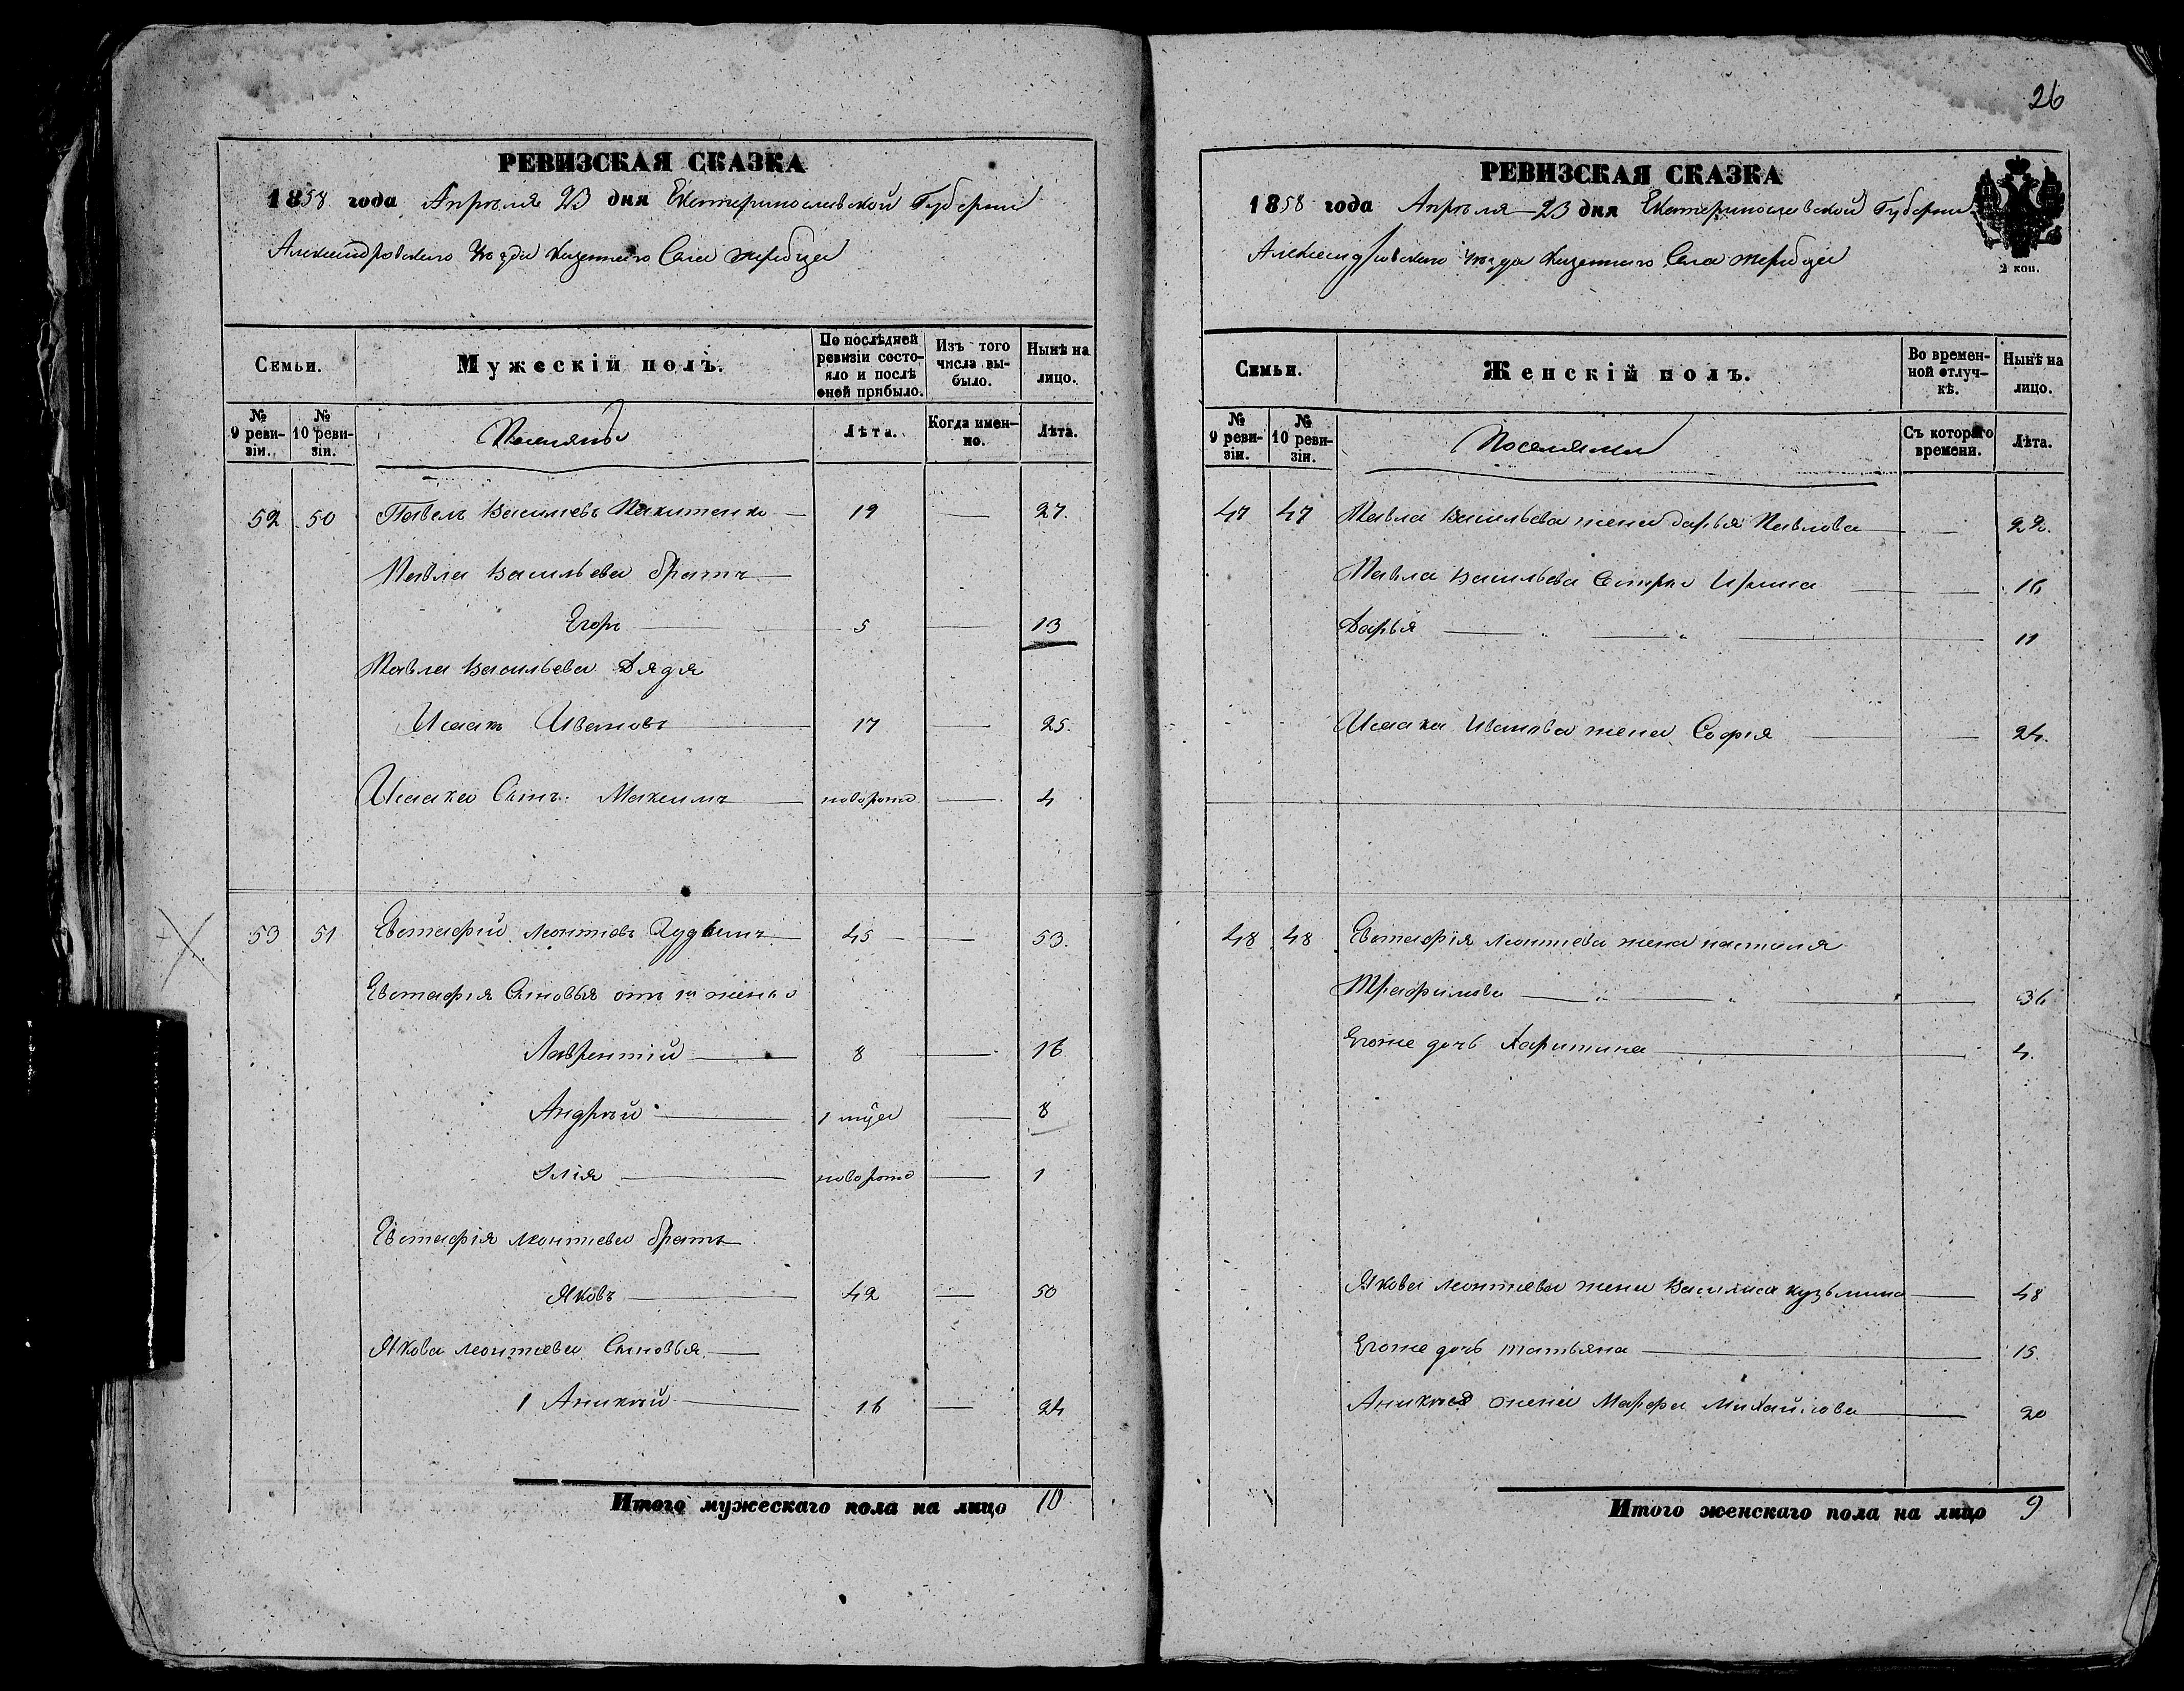 РЕВИЗСКАЯ СКАЗКА
1858 года Апрѣля 23 дня Екатеринославской Губерніи
Александровскаго Уѣзда Казеннаго Села Жеребца
Семьи. Мужескій полъ. По послѣдней ревизіи состояло и послѣ оной прибыло. Изъ того числа выбыло. Нынѣ на лицо.
№ 9 ревизіи. № 10 ревизіи. Поселянъ Лѣта. Когда именно. Лѣта.
52 50 Павелъ Васильевъ Никитенко 19 — 27.
Павла Васильева братъ
Егоръ 5 — 13
Павла Васильева Дядя
Исаакъ Ивановъ 17 — 25.
Исаака Сынъ Максимъ новорожд — 4
53 51 Евстафій Леонтіевъ 45 — 53.
Евстафія Сыновья отъ 1й жены
Лаврентій 8 — 16
Андрѣй 1 мѣся — 8
Илія новорожд — 1
Евстафія Леонтіева братъ
Яковъ 42 — 50
Якова Леонтіева Сыновья
1 Аникѣй 16 — 24
Итого мужескаго пола на лицо 10
26
РЕВИЗСКАЯ СКАЗКА
1858 года Апрѣля 23 дня Екатеринославской Губерніи
Александровскаго Уѣзда Казеннаго Села Жеребца
2 коп.
Семьи. Женскій полъ. Во временной отлучкѣ. Нынѣ на лицо.
№ 9 ревизіи. № 10 ревизіи. Поселянъ Съ котораго времени. Лѣта.
47 47 Павла Васильева жена Дарья Павлова — 22.
Павла Васильева Сестры Ирина — 16
Дарья — " — " — 11
Исаака Иванова жена Софія — 24.
48 48 Евстафія Леонтіева жена Наталія
Трафимова — " — " — 36
Егоже дочь Харитина — 4.
Якова Леонтіева жена Василиса Кузьмина — 48
Егоже дочь Татьяна — 15.
Аникѣя жена Марфа Михайлова — 20
Итого женскаго пола на лицо 9